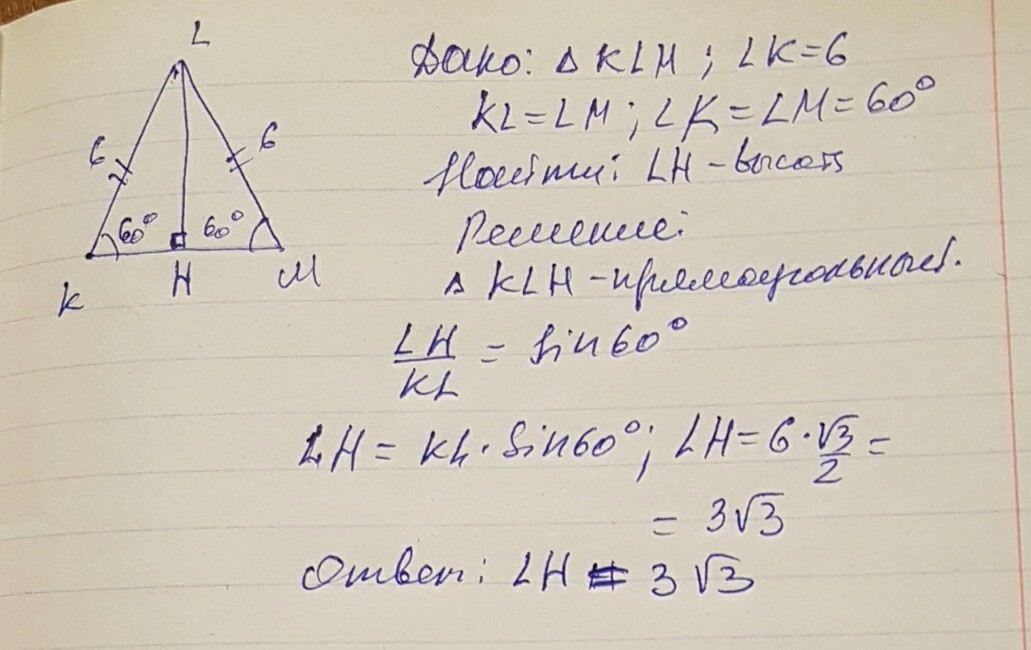 L
6 6
60° 60°
K H M
Дано: Δ KLM ; LK=6
KL=LM ; ∠K=∠M=60°
Найти: LH-высота
Решение:
Δ KLH-прямоугольный.
LH/KL = sin60°
LH = KL·sin60°; LH=6·√3/2=
= 3√3
Ответ: LH = 3√3